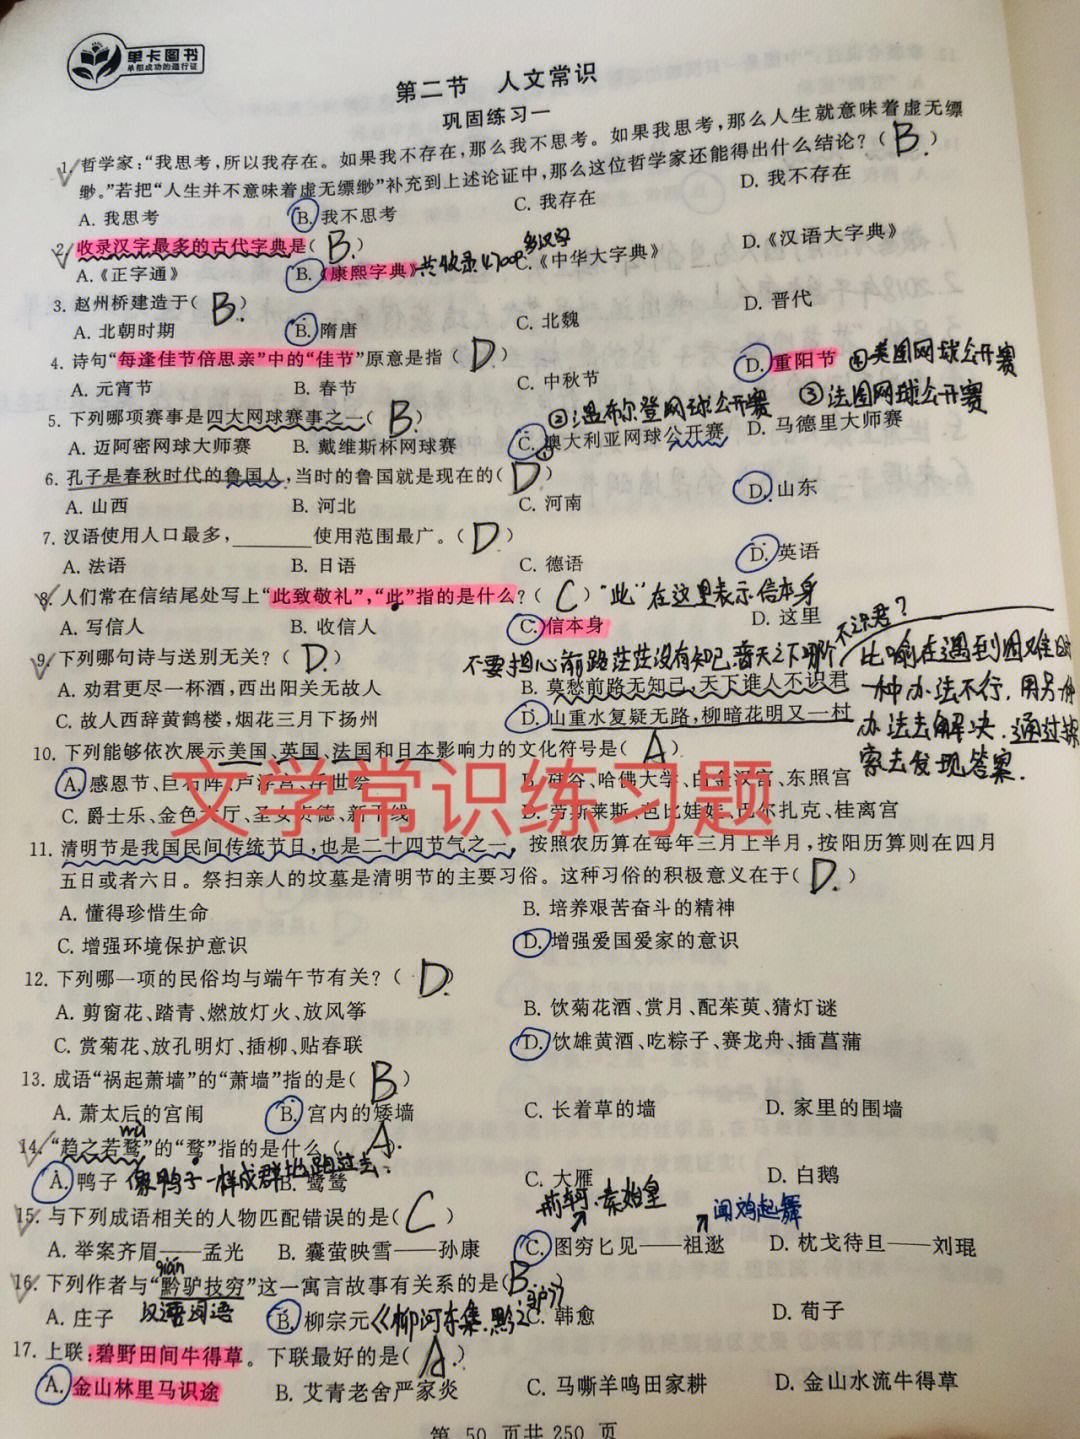 单卡图书
单招成功的通行证
第二节 人文常识
巩固练习一
1. 哲学家：“我思考，所以我存在。如果我不存在，那么我不思考。如果我思考，那么人生就意味着虚无缥
缈。”若把“人生并不意味着虚无缥缈”补充到上述论证中，那么这位哲学家还能得出什么结论？（ B. ）
A. 我思考 B. 我不思考 C. 我存在 D. 我不存在
2. 收录汉字最多的古代字典是（ B. ）
A.《正字通》 B.《康熙字典》共收录47000多汉字 C.《中华大字典》 D.《汉语大字典》
3. 赵州桥建造于（ B. ）
A. 北朝时期 B. 隋唐 C. 北魏 D. 晋代
4. 诗句“每逢佳节倍思亲”中的“佳节”原意是指（ D. ）
A. 元宵节 B. 春节 C. 中秋节 D. 重阳节 ④美国网球公开赛
5. 下列哪项赛事是四大网球赛事之一（ B. ） ②温布尔登网球公开赛 ③法国网球公开赛
A. 迈阿密网球大师赛 B. 戴维斯杯网球赛 C. 澳大利亚网球公开赛 ① D. 马德里大师赛
6. 孔子是春秋时代的鲁国人，当时的鲁国就是现在的（ D. ）
A. 山西 B. 河北 C. 河南 D. 山东
7. 汉语使用人口最多，________使用范围最广。（ D. ）
A. 法语 B. 日语 C. 德语 D. 英语
8. 人们常在信结尾处写上“此致敬礼”，“此”指的是什么？（ C ） “此”在这里表示信本身
A. 写信人 B. 收信人 C. 信本身 D. 这里
9. 下列哪句诗与送别无关？（ D. ） 不要担心前路茫茫没有知己普天之下哪个不识君？
A. 劝君更尽一杯酒，西出阳关无故人 B. 莫愁前路无知己，天下谁人不识君
C. 故人西辞黄鹤楼，烟花三月下扬州 D. 山重水复疑无路，柳暗花明又一村
比喻在遇到困难时
一种办法不行，用另一种
办法去解决，通过探
索去发现答案.
10. 下列能够依次展示美国、英国、法国和日本影响力的文化符号是（ A ）
A. 感恩节、巨石阵、卢浮宫、浮世绘 B. 硅谷、哈佛大学、白金汉宫、东照宫
文学常识练习题
C. 爵士乐、金色大厅、圣女贞德、新干线 D. 劳斯莱斯、芭比娃娃、巴尔扎克、桂离宫
11. 清明节是我国民间传统节日，也是二十四节气之一，按照农历算在每年三月上半月，按阳历算则在四月
五日或者六日。祭扫亲人的坟墓是清明节的主要习俗。这种习俗的积极意义在于（ D. ）
A. 懂得珍惜生命 B. 培养艰苦奋斗的精神
C. 增强环境保护意识 D. 增强爱国爱家的意识
12. 下列哪一项的民俗均与端午节有关？（ D. ）
A. 剪窗花、踏青、燃放灯火、放风筝 B. 饮菊花酒、赏月、配茱萸、猜灯谜
C. 赏菊花、放孔明灯、插柳、贴春联 D. 饮雄黄酒、吃粽子、赛龙舟、插菖蒲
13. 成语“祸起萧墙”的“萧墙”指的是（ B ）
A. 萧太后的宫闱 B. 宫内的矮墙 C. 长着草的墙 D. 家里的围墙
wù
14. “趋之若鹜”的“鹜”指的是什么（ A.
A. 鸭子 像鸭子一样成群地跑过去. B. 鸳鸯 C. 大雁 D. 白鹅
荆轲、秦始皇 闻鸡起舞
15. 与下列成语相关的人物匹配错误的是（ C ）
A. 举案齐眉——孟光 B. 囊萤映雪——孙康 C. 图穷匕见——祖逖 D. 枕戈待旦——刘琨
qián
16. 下列作者与“黔驴技穷”这一寓言故事有关系的是（ B. ）
A. 庄子 汉语词语 B. 柳宗元《柳河东集.黔之驴》 C. 韩愈 D. 荀子
17. 上联：碧野田间牛得草。下联最好的是（ A. ）
A. 金山林里马识途 B. 艾青老舍严家炎 C. 马嘶羊鸣田家耕 D. 金山水流牛得草
第 50 页共 250 页